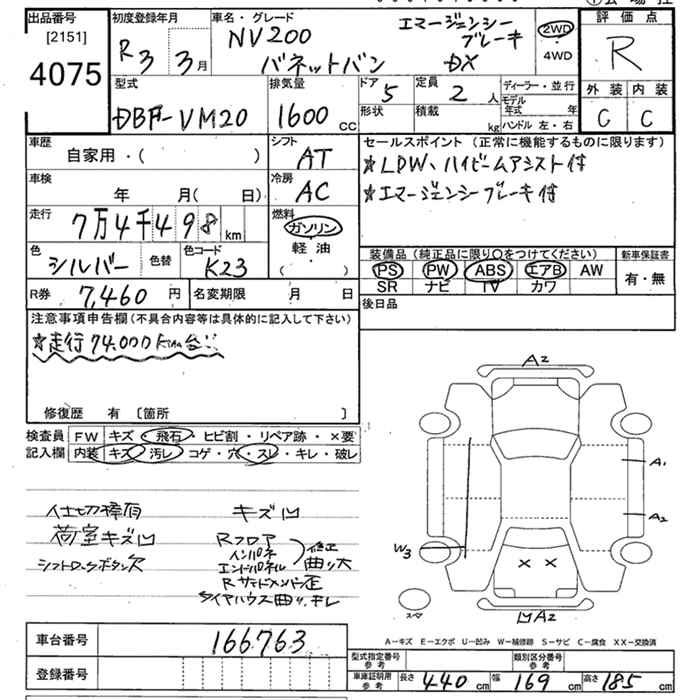 出品番号 初度登録年月 車名・グレード エマージェンシー 2WD 評価点
[2151] R3 3月 NV200 ブレーキ ・ R
4075 バネットバン DX 4WD 外装 内装
型式 排気量 ドア 5 定員 2人 ディーラー・並行 C C
DBF-VM20 1600cc 形状 積載 kg モデル年式 年
ハンドル 左・右
車歴 シフト セールスポイント(正常に機能するものに限ります)
自家用・( ) AT ☆LDW、ハイビームアシスト付
車検 冷房 ☆エマージェンシーブレーキ付
年 月( 日) AC
走行 7万4千498km 燃料
ガソリン
軽油
・( )
色 シルバー 色替 色コード K23
装備品(純正品に限り○をつけてください) 新車保証書
PS PW ABS エアB AW 有・無
SR ナビ TV カワ
R券 7,460円 名変期限 月 日 後日品
注意事項申告欄(不具合内容等は具体的に記入して下さい)
☆走行74,000km台!!
修復歴 有 [箇所 ]
検査員 FW キズ・飛石・ヒビ割・リペア跡・×要
記入欄 内装 キズ・汚レ・コゲ・穴・スレ・キレ・破レ
A2
A1
A2
W3
× ×
スペア
凹A2
仕切棒有 キズ凹
荷室キズ凹 Rフロア
シフトロックボタン欠 インパネ 修正
エンドパネル 曲り大
Rサイドメンバー歪
タイヤハウス曲り、キレ
A－キズ E－エクボ U－凹み W－補修跡 S－サビ C－腐食 XX－交換済
車台番号 166763
登録番号
型式指定番号 参考 類別区分番号 参考
車庫証明用 参考 長さ 440cm 幅 169cm 高さ 185cm